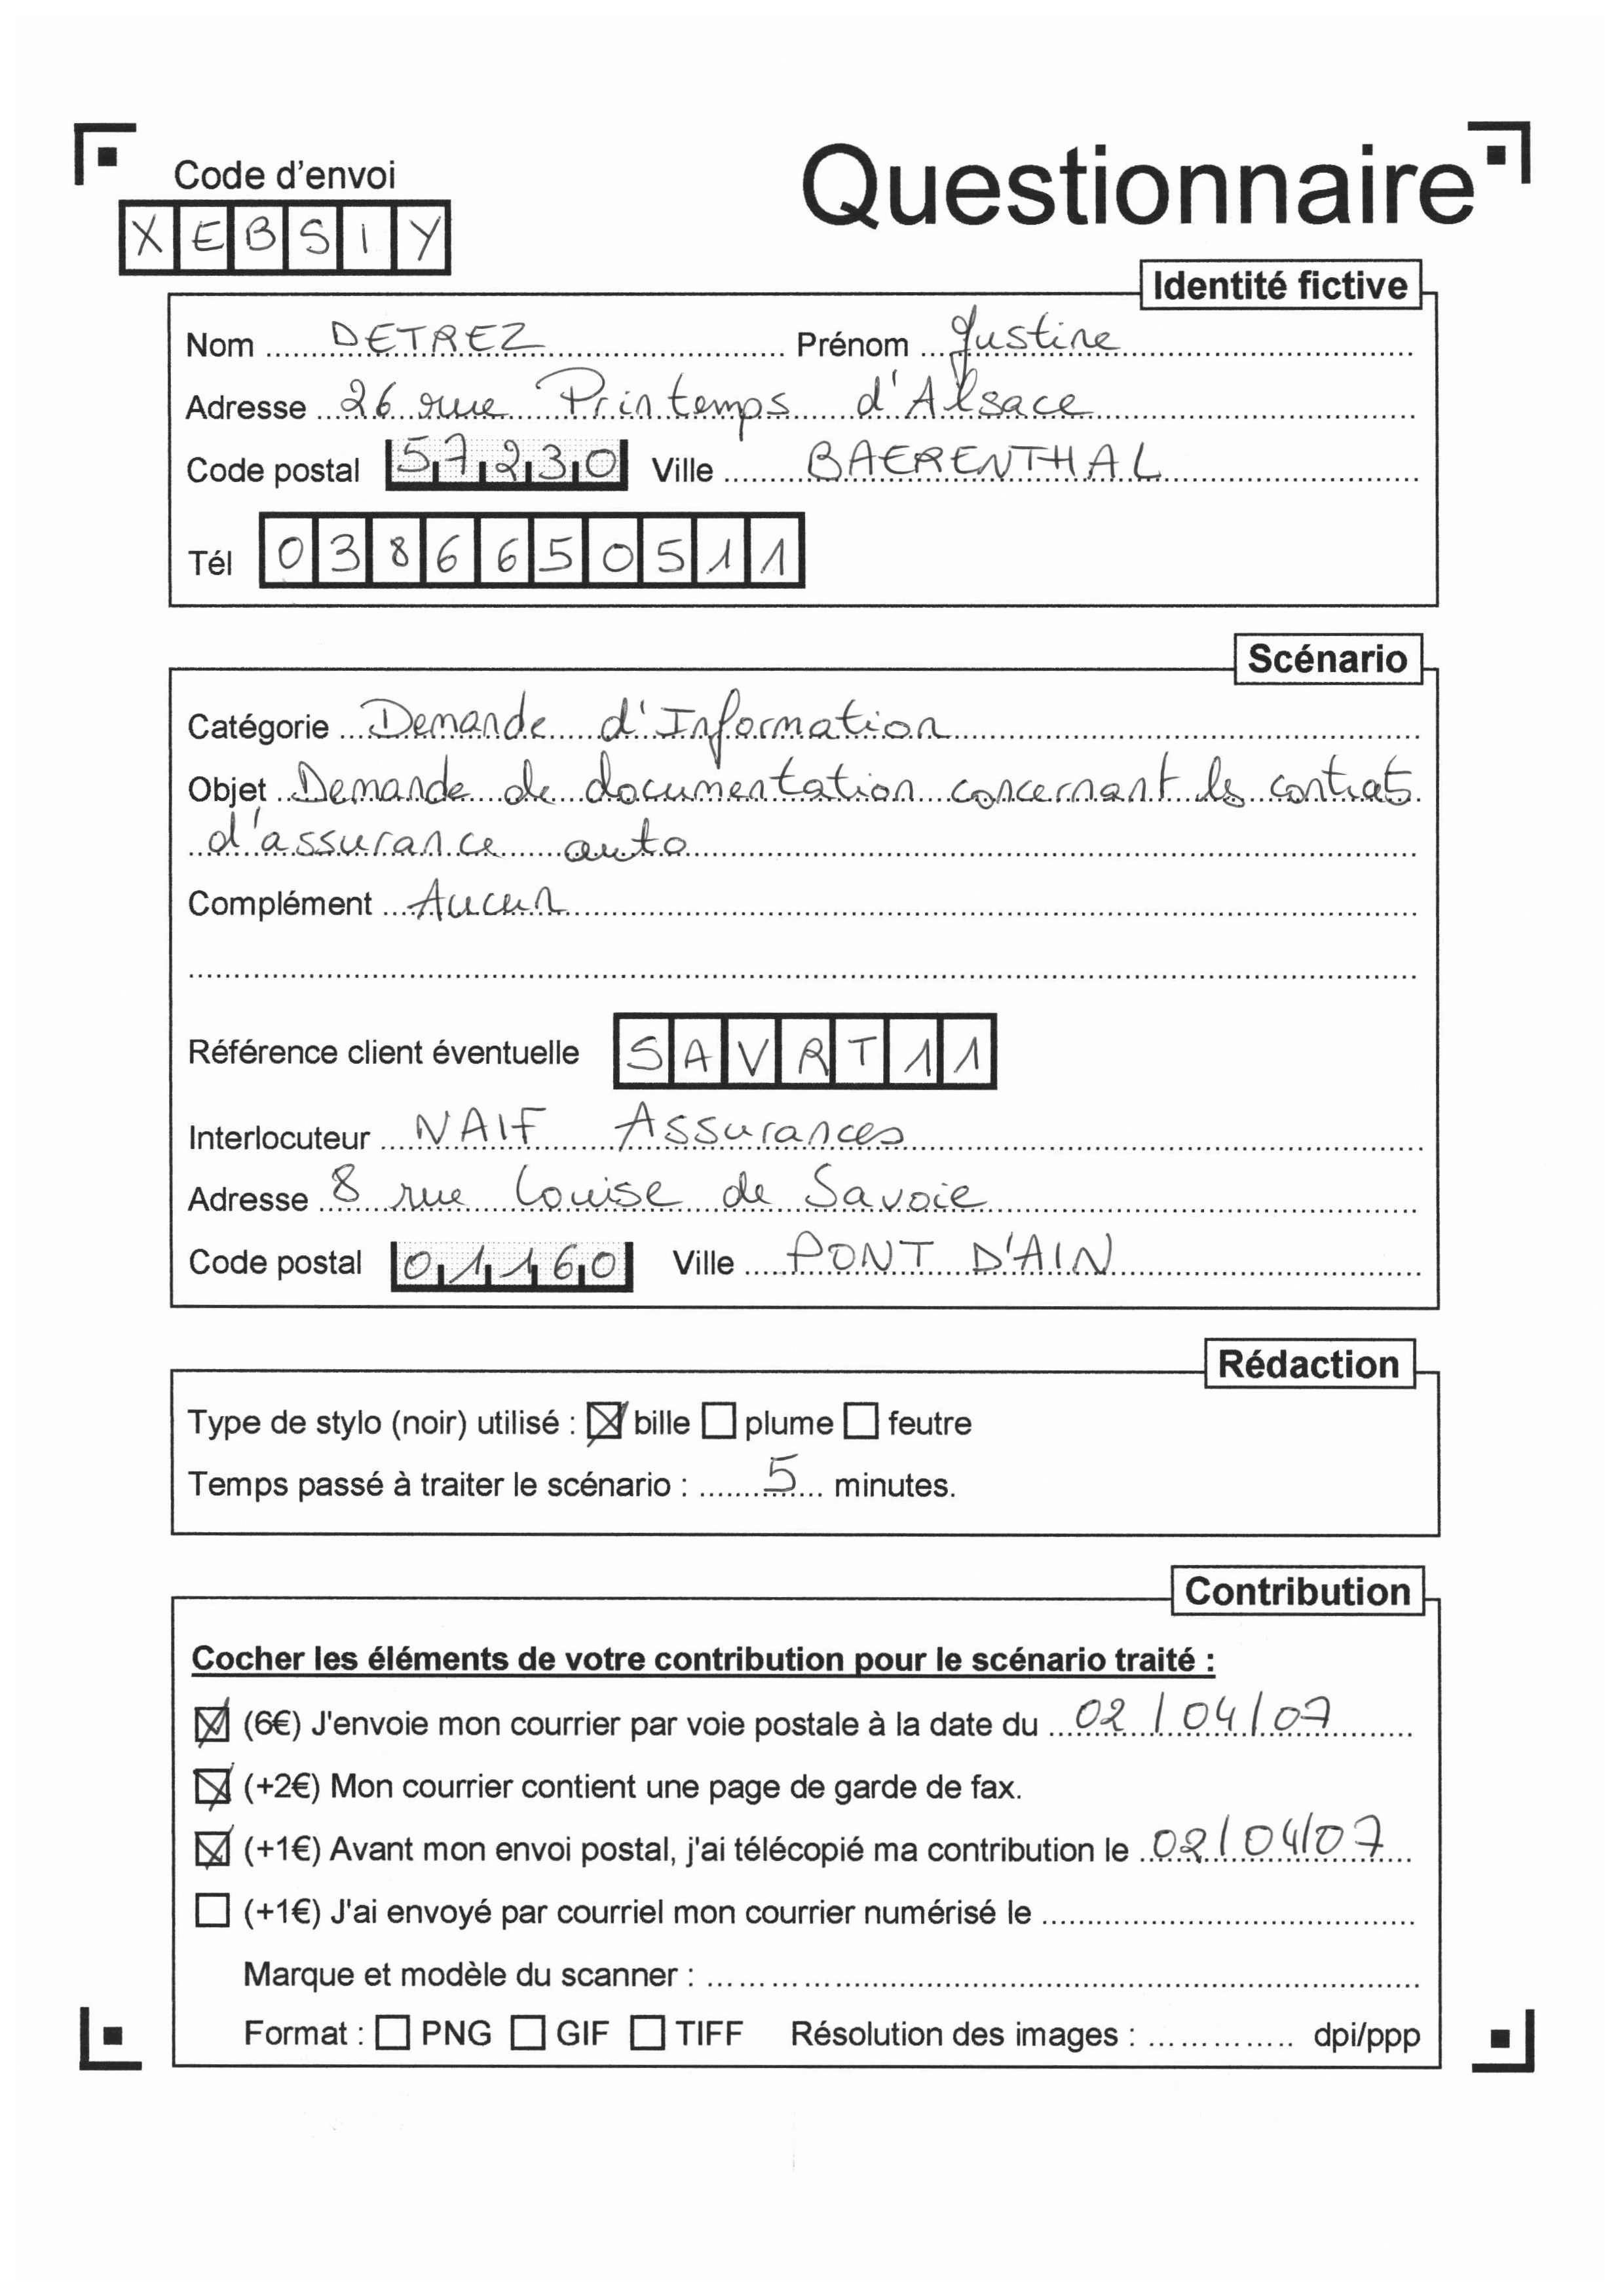 Code d'envoi
Questionnaire
XEBSIY
Identité fictive
Nom DETREZ Prénom Justine
Adresse 26 rue Printemps d'Alsace
Code postal 57230 Ville BAERENTHAL
Tél 0386650511
Scénario
Catégorie Demande d'Information
Objet Demande de documentation concernant les contrats
d'assurance auto
Complément Aucun
Référence client éventuelle SAVRT11
Interlocuteur NAIF Assurances
Adresse 8 rue Louise de Savoie
Code postal 01160 Ville PONT D'AIN
Rédaction
Type de stylo (noir) utilisé : ☒ bille ☐ plume ☐ feutre
Temps passé à traiter le scénario : 5 minutes.
Contribution
Cocher les éléments de votre contribution pour le scénario traité :
☒ (6€) J'envoie mon courrier par voie postale à la date du 02/04/07
☒ (+2€) Mon courrier contient une page de garde de fax.
☒ (+1€) Avant mon envoi postal, j'ai télécopié ma contribution le 02/04/07
☐ (+1€) J'ai envoyé par courriel mon courrier numérisé le
Marque et modèle du scanner :
Format : ☐ PNG ☐ GIF ☐ TIFF Résolution des images : dpi/ppp